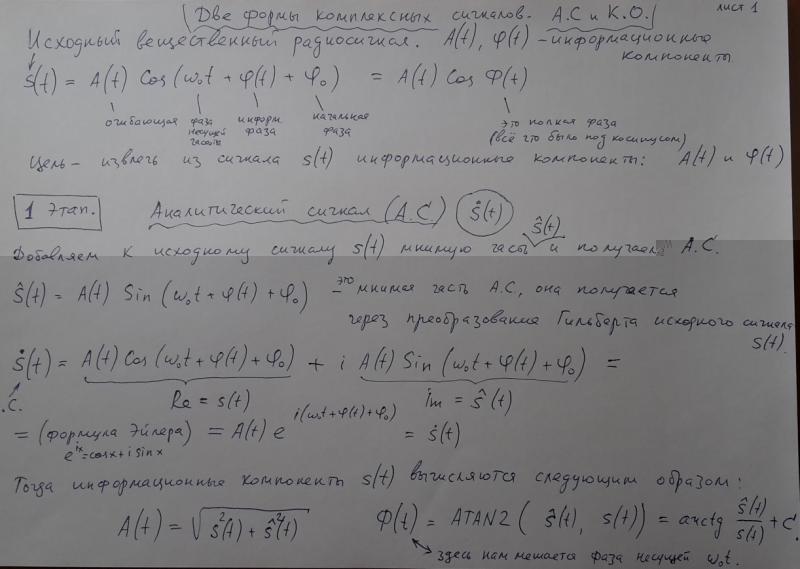 лист 1
Две формы комплексных сигналов. А.С и К.О.
Исходный вещественный радиосигнал. A(t), φ(t) – информационные
компоненты
s(t) = A(t) Cos (ω₀t + φ(t) + φ₀) = A(t) Cos Φ(t)
огибающая фаза несущей частоты информ фаза начальная фаза это полная фаза
(всё что было под косинусом)
Цель – извлечь из сигнала s(t) информационные компоненты: A(t) и φ(t)
1 Этап. Аналитический сигнал (А.С) ṡ(t)
ŝ(t)
Добавляем к исходному сигналу s(t) мнимую часть и получаем А.С.
ŝ(t) = A(t) Sin (ω₀t + φ(t) + φ₀) – это мнимая часть А.С., она получается
через преобразование Гильберта исходного сигнала
s(t).
ṡ(t) = A(t) Cos (ω₀t + φ(t) + φ₀) + i A(t) Sin (ω₀t + φ(t) + φ₀) =
.С. Re = s(t) im = ŝ(t)
= (формула Эйлера) = A(t) e^{i(ω₀t + φ(t) + φ₀)} = ṡ(t)
e^{ix} = cosx + i sinx
Тогда информационные компоненты s(t) вычисляются следующим образом:
A(t) = √(s²(t) + ŝ²(t)) Φ(t) = ATAN2 ( ŝ(t), s(t)) = arctg ŝ(t)/s(t) + C.
здесь нам мешается фаза несущей ω₀t.